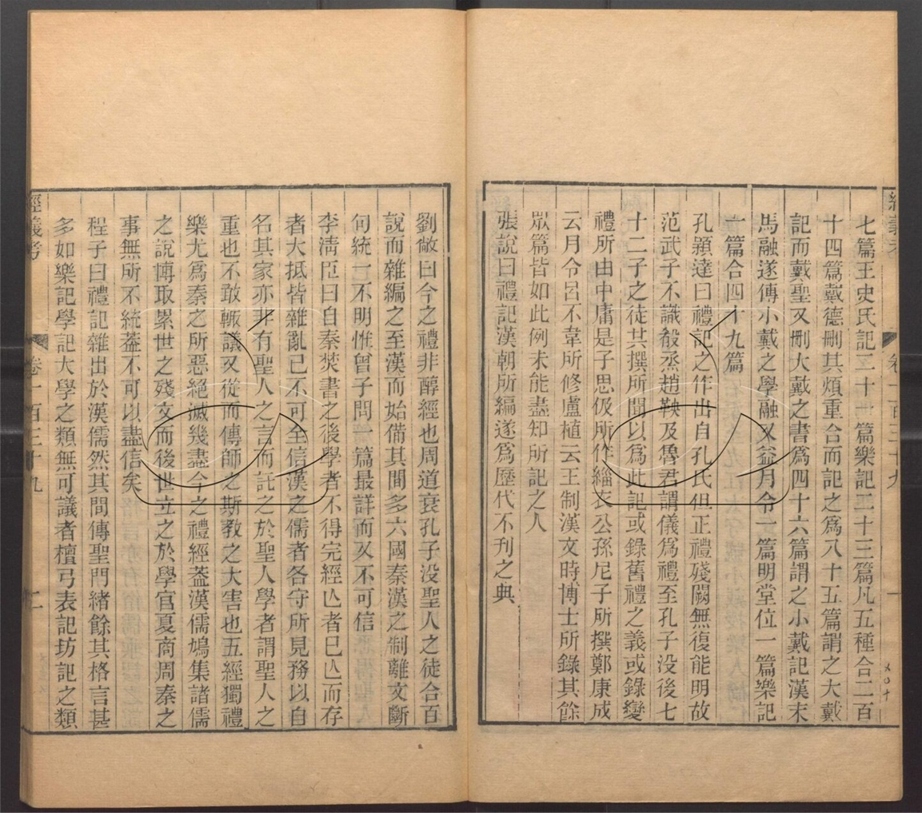 七篇王史氏記二十一篇樂記二十三篇凡五種合二百
十四篇戴德刪其煩重合而記之為八十五篇謂之大戴
記而戴聖又刪大戴之書爲四十六篇謂之小戴記漢末
馬融遂傳小戴之學融又益月令一篇明堂位一篇樂記
一篇合四十九篇
孔穎達曰禮記之作出自孔氏但正禮殘闕無復能明故
范武子不識殽烝趙鞅及魯君謂儀爲禮至孔子没後七
十二子之徒共撰所聞以爲此記或錄舊禮之義或錄變
禮所由中庸是子思伋所作緇衣公孫尼子所撰鄭康成
云月令呂不韋所修盧植云王制漢文時博士所錄其餘
眾篇皆如此例未能盡知所記之人
張說曰禮記漢朝所編遂爲歷代不刊之典
經義考
卷一百三十九
一
劉敞曰今之禮非醇經也周道衰孔子没聖人之徒合百
說而雜編之至漢而始備其間多六國秦漢之制離文斷
句統一不明惟曾子問一篇最詳而又不可信
李清臣曰自秦焚書之後學者不得完經亾者已亾而存
者大抵皆雜亂已不可全信漢之儒者各守所見務以自
名其家亦非有聖人之言而託之於聖人學者謂聖人之
重也不敢輙議又從而傳師之斯教之大害也五經獨禮
樂尤爲秦之所惡絕滅幾盡今之禮經葢漢儒鳩集諸儒
之說博取累世之殘文而後世立之於學官夏商周秦之
事無所不統葢不可以盡信矣
程子曰禮記雜出於漢儒然其間傳聖門緒餘其格言甚
多如樂記學記大學之類無可議者檀弓表記坊記之類
經義考
卷一百三十九
二